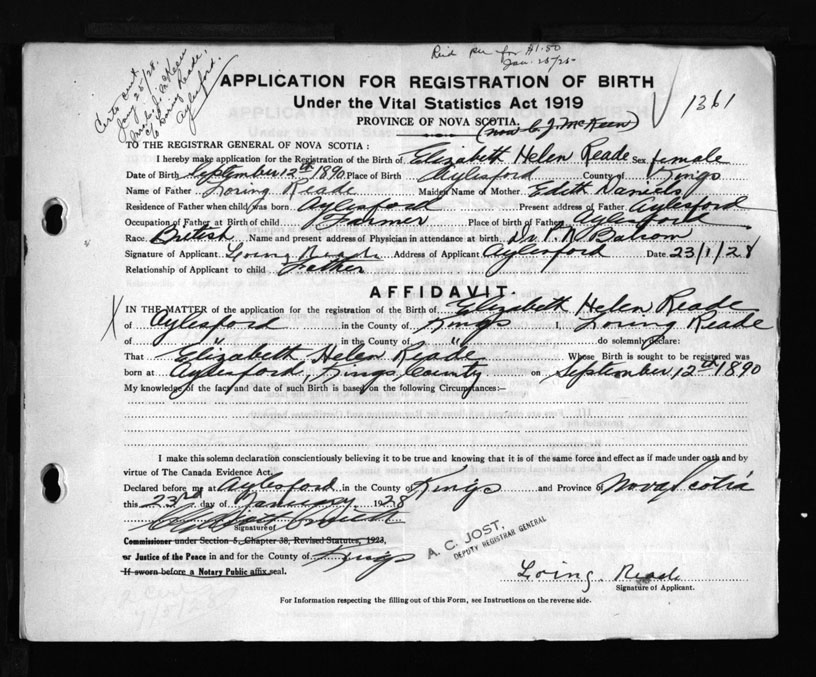 Recd fee for $1.50
Jan. 25/28
Certs sent
Jany 25/28.
c/o Loring Reade,
Aylesford.
APPLICATION FOR REGISTRATION OF BIRTH
Under the Vital Statistics Act 1919
PROVINCE OF NOVA SCOTIA.
1361
(now C. J. McKeen)
TO THE REGISTRAR GENERAL OF NOVA SCOTIA:
I hereby make application for the Registration of the Birth of Elizabeth Helen Reade Sex female
Date of Birth September 12th 1890 Place of Birth Aylesford County of Kings
Name of Father Loring Reade Maiden Name of Mother Edith Daniels
Residence of Father when child was born Aylesford Present address of Father Aylesford
Occupation of Father at Birth of child Farmer Place of birth of Father Aylesford
Race British Name and present address of Physician in attendance at birth Dr. P. N. Balcom
Signature of Applicant Loring Reade Address of Applicant Aylesford Date 23/1/28
Relationship of Applicant to child Father
AFFIDAVIT.
X
IN THE MATTER of the application for the registration of the Birth of Elizabeth Helen Reade
of Aylesford in the County of Kings I, Loring Reade
of " in the County of " do solemnly declare:
That Elizabeth Helen Reade Whose Birth is sought to be registered was
born at Aylesford, Kings County on September 12th 1890
My knowledge of the fact and date of such Birth is based on the following Circumstances:—
I make this solemn declaration conscientiously believing it to be true and knowing that it is of the same force and effect as if made under oath and by
virtue of The Canada Evidence Act.
Declared before me at Aylesford in the County of Kings and Province of Nova Scotia
this 23rd day of January 1928
Signature of
Commissioner under Section 5, Chapter 38, Revised Statutes, 1923,
or Justice of the Peace in and for the County of Kings
If sworn before a Notary Public affix seal.
A. C. JOST,
DEPUTY REGISTRAR GENERAL
Loring Reade
Signature of Applicant.
2 Cert
For Information respecting the filling out of this Form, see Instructions on the reverse side.